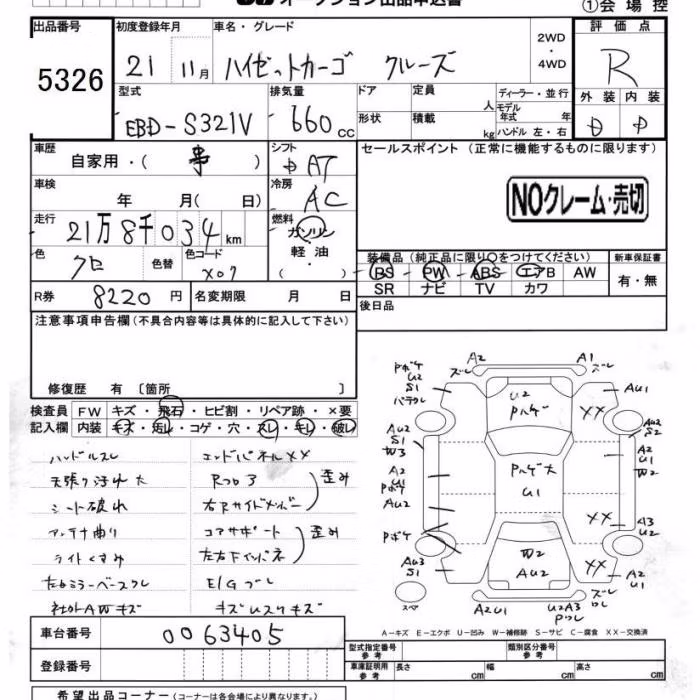 オークション出品申込書
①会場控
出品番号
5326
初度登録年月
21 11月
車名・グレード
ハイゼットカーゴ クルーズ
2WD
・
4WD
評価点
R
型式
EBD-S321V
排気量
660 CC
ドア
定員
人
形状
積載
kg
ディーラー・並行
モデル
年式 年
ハンドル 左・右
外装 内装
D D
車歴
自家用・( 事 )
シフト
AT
セールスポイント (正常に機能するものに限ります)
NOクレーム・売切
車検
年 月( 日)
冷房
AC
走行
21万8千034 km
燃料
ガソリン
軽油
・
( )
色
クロ
色替
色コード
X07
装備品(純正品に限り○をつけてください)
BS PW ABS エアB AW
SR ナビ TV カワ
新車保証書
有・無
R券
8220 円
名変期限 月 日
後日品
注意事項申告欄(不具合内容等は具体的に記入して下さい)
修復歴 有 〔箇所 〕
検査員 FW キズ・飛石・ヒビ割・リペア跡・×要
記入欄 内装 キズ・汚レ・コゲ・穴・スレ・キレ・破レ
ハンドルスレ
天張り汚れ大
シート破れ
アンテナ曲り
ライトくすみ
左ドアミラーベースワレ
社外AWキズ
エンドパネルXX
Rフロア
右Rサイドメンバー
歪み
コアサポート
左右下インパネ
歪み
E/Gブレ
キズUスリキズ
A2
ズレ
A1
ズレ
Pボケ
U2
S1
バラクレ
U2
Pハゲ
AU1
XX
AU2
S1
W3
AU2
S2
A2
U1
W2
A2
U1
Pボケ
AU2
Pハゲ大
U1
Pボケ
XX
A3
U2
AU3
S1
W2
AU2
XX
A2
U1
スペア
A2U1
U2A3
Pワレ
ズレ
ワレ
A-キズ E-エクボ U-凹み W-補修跡 S-サビ C-腐食 XX-交換済
車台番号
0063405
登録番号
型式指定番号
参考
類別区分番号
参考
車庫証明用
参考
長さ cm
幅 cm
高さ cm
希望出品コーナー(コーナーは各会場により異なります。)